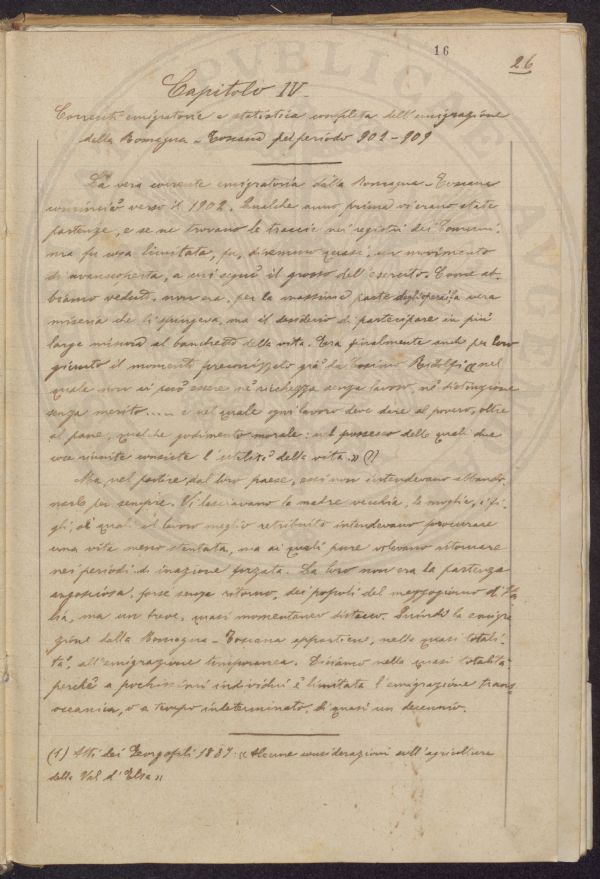 16
26
Capitolo IV
Correnti emigratorie e statistica completa dell'emigrazione
della Romagna-Toscana pel periodo 902-909
La vera corrente emigratoria dalla Romagna-Toscana
cominciò verso il 1902. Qualche anno prima vi erano state
partenze, e se ne trovano le traccie nei registri dei Comuni,
ma fu cosa limitata, fu, diremmo quasi, un movimento
di avanscoperta, a cui seguì il grosso dell'esercito. Come ab-
biamo veduto, non era, per la massima parte degli operai, la vera
miseria che li spingeva, ma il desiderio di partecipare in più
larga misura al banchetto della vita. Era finalmente anche per loro
giunto il momento preconizzato già da Cosimo Ridolfi "nel
quale non vi può essere nè ricchezza senza lavoro, nè distinzione
senza merito..... e nel quale ogni lavoro deve dare al povero, oltre
al pane, qualche godimento morale: nel possesso delle quali due
cose riunite consiste l'utilità della vita.» (1)
Ma nel partire dal loro paese, essi non intendevano abbando-
narlo per sempre. Vi lasciavano la madre vecchia, la moglie, i fi-
gli, ai quali col lavoro meglio retribuito intendevano procurare
una vita meno stentata, ma ai quali pure volevano ritornare
nei periodi di inazione forzata. La loro non era la partenza
angosciosa, forse senza ritorno, dei popoli del mezzogiorno d'Ita-
lia, ma un breve, quasi momentaneo distacco. Quindi la emigra-
zione dalla Romagna-Toscana appartiene, nella quasi totali-
tà, all'emigrazione temporanea. Diciamo nella quasi totalità
perchè a pochissimi individui è limitata l'emigrazione trans-
oceanica, o a tempo indeterminato, di quasi un decennio.
(1) Atti dei Georgofili 1837: «Alcune considerazioni sull'agricoltura
della Val d'Elsa»